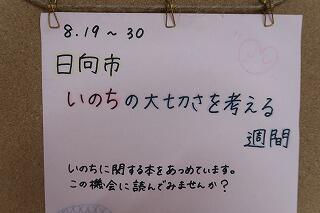 8.19～30
日向市
いのちの大切さを考える
週間
いのちに関する本をあつめています。
この機会に読んでみませんか？